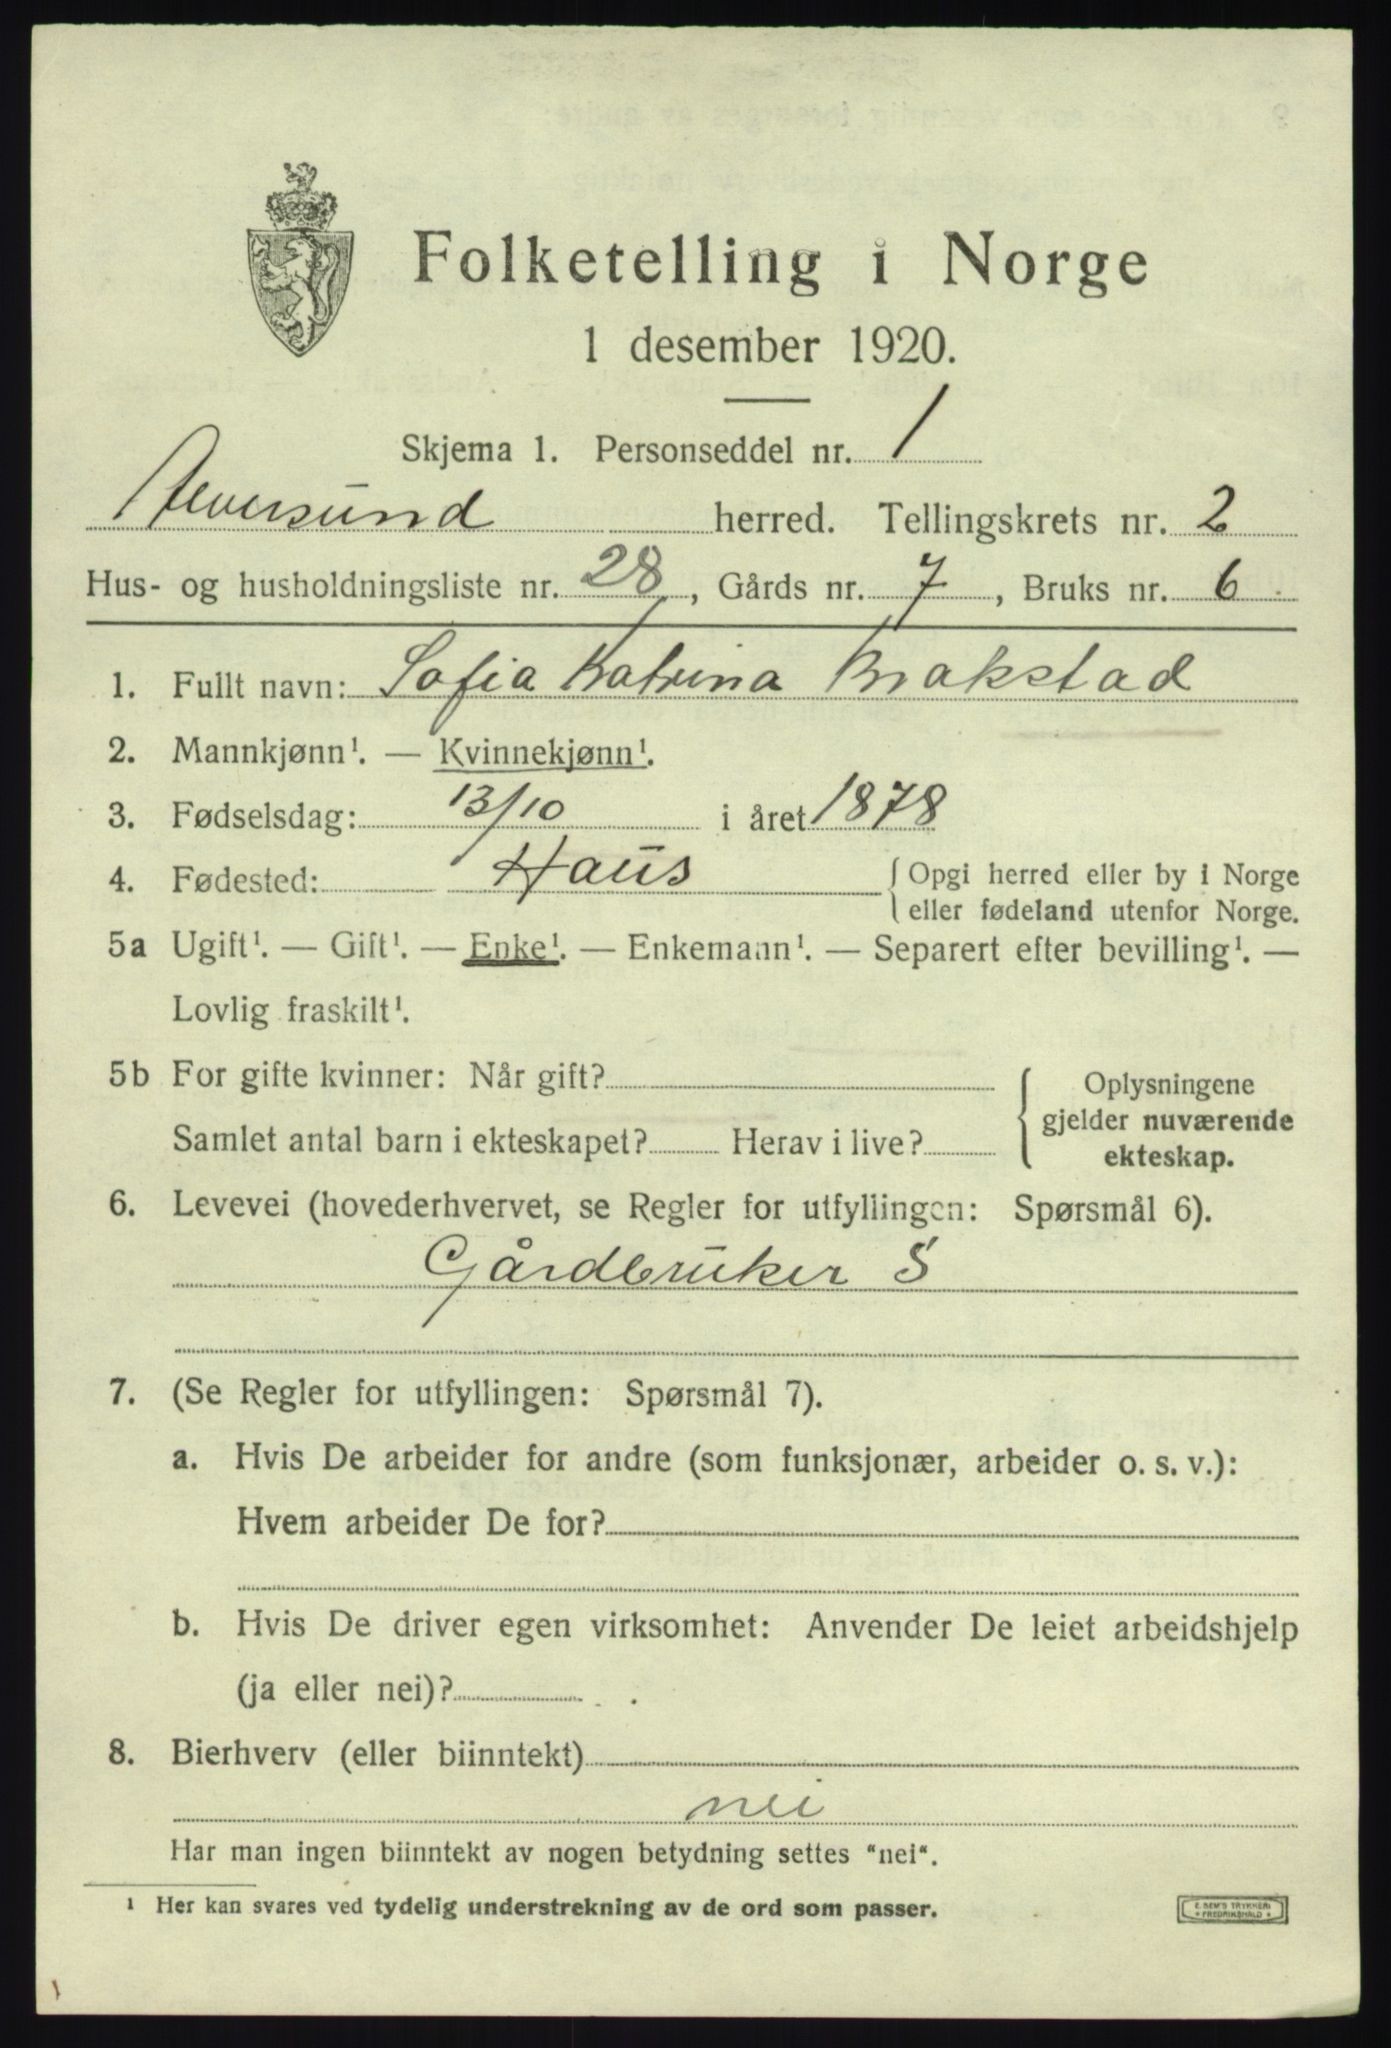 Folketelling i Norge
1 desember 1920.
Skjema 1. Personseddel nr. 1
Alversund herred. Tellingskrets nr. 2
Hus- og husholdningsliste nr. 28, Gårds nr. 7, Bruks nr. 6
1. Fullt navn: Sofia Katrina Brakstad
2. Mannkjønn¹. — Kvinnekjønn¹.
3. Fødselsdag: 13/10 i året 1878
4. Fødested: Haus { Opgi herred eller by i Norge
eller fødeland utenfor Norge.
5a Ugift¹. — Gift¹. — Enke¹. — Enkemann¹. — Separert efter bevilling¹. —
Lovlig fraskilt¹.
5b For gifte kvinner: Når gift? { Oplysningene
gjelder nuværende
Samlet antal barn i ekteskapet? Herav i live? ekteskap.
6. Levevei (hovederhvervet, se Regler for utfyllingen: Spørsmål 6).
Gårdbruker S
7. (Se Regler for utfyllingen: Spørsmål 7).
a. Hvis De arbeider for andre (som funksjonær, arbeider o. s. v.):
Hvem arbeider De for?
b. Hvis De driver egen virksomhet: Anvender De leiet arbeidshjelp
(ja eller nei)?
8. Bierhverv (eller biinntekt)
nei
Har man ingen biinntekt av nogen betydning settes "nei".
¹ Her kan svares ved tydelig understrekning av de ord som passer.
E. SEM'S TRYKKERI
FREDRIKSHALD